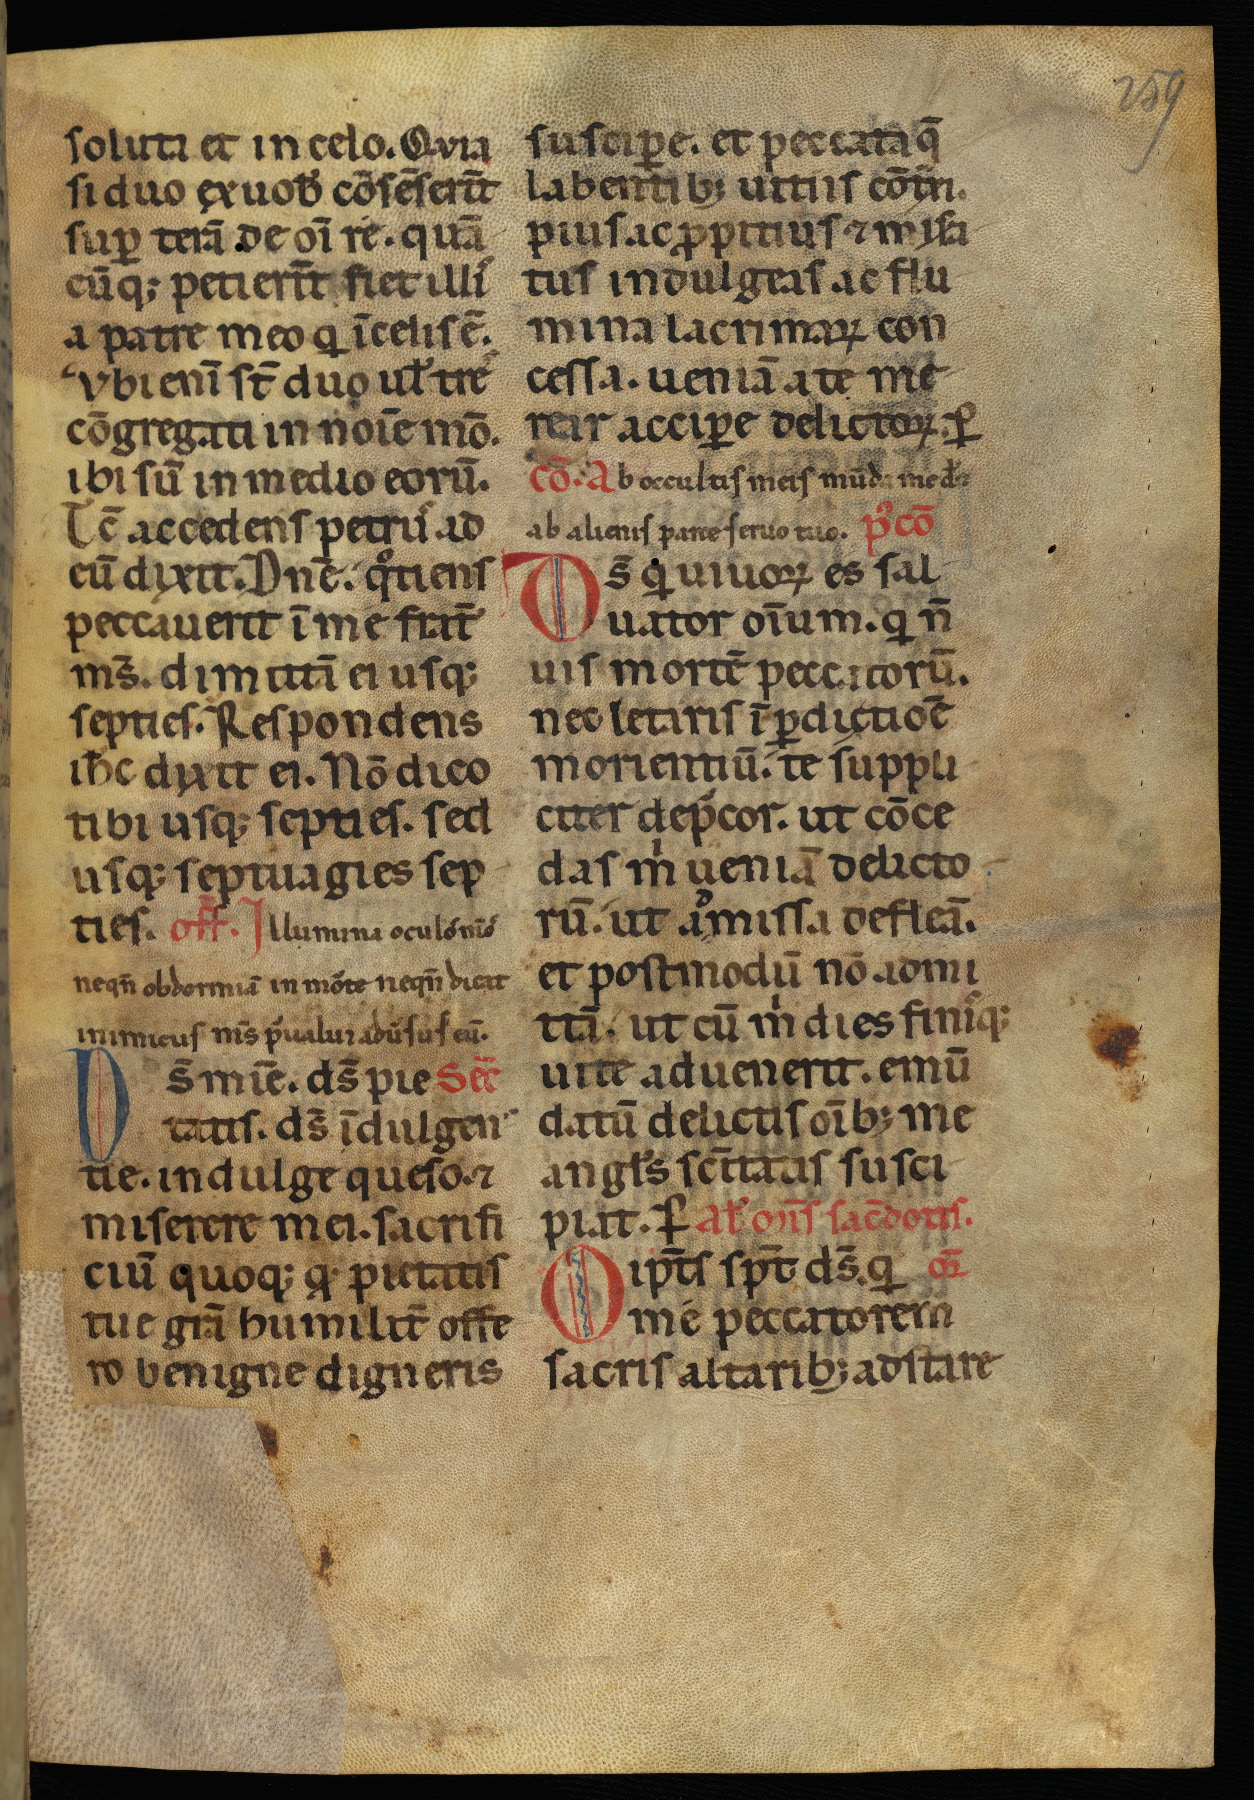 259
soluta et in celo. Qvia
si duo ex uob̄ cōsēserīt
sup̄ terā de oī re. quā
cūq; petierīt fiet illi
a patre meo q̄ ī celis ē.
Vbi enī st̄ duo ul̄ tre
cōgregati in noīe mō.
ibi sū in medio eorū.
Tc̄ accedens petru ad
eū dixit. Dnē. qͦtiens
peccauerit ī me frat̄
ms̄. dimittā ei usq;
septies. Respondens
ih̄c dixit ei. Nō dico
tibi usq; septies. sed
usq; septuagies sep
ties. off̄. Illumina oculo mō
neqn̄ obdormiā in mōte neqn̄ dicat
inimicus ms̄ p̄ualui adūsus eū.
Ds̄ mīe. ds̄ pie Secr̄
tatis. ds̄ īdulgen
tie. indulge queso. ⁊
miserere mei. sacrifi
ciū quoq; q̄ pietatis
tue grā humilit̄ offe
ro benigne digneris
suscipe. et peccata q̄
labentib; uitiis cōtri.
pius ac p̄pitius ⁊ mysa
tus indulgeas ac flu
mina lacrimaꝝ con
cessa. ueniā a te me
rear accipe delictoꝝ. P̄
cō. Ab occultis meis mūda me d̄
ab alienis parce seruo tuo. pͦcō
Ds̄ q̄ uiuoꝝ es sal
uator oīum. q̄ n̄
uis mortē peccatorū.
nec letaris ī p̄ditiōe
morientiū. te suppli
citer dep̄cor. ut cōce
das m̄ ueniā delicto
rū. ut amissa defleā.
et postmodū nō admi
ttā. ut cū m̄ dies finisq;
uite aduenerit. emū
datū delictis oīb; me
angl̄s sc̄itatis susci
piat. P̄ Al̄ on̄s sac̄dotis.
Oip̄ts sp̄t ds̄. q̄ or̄
me peccatorem
sacris altarib; adstare